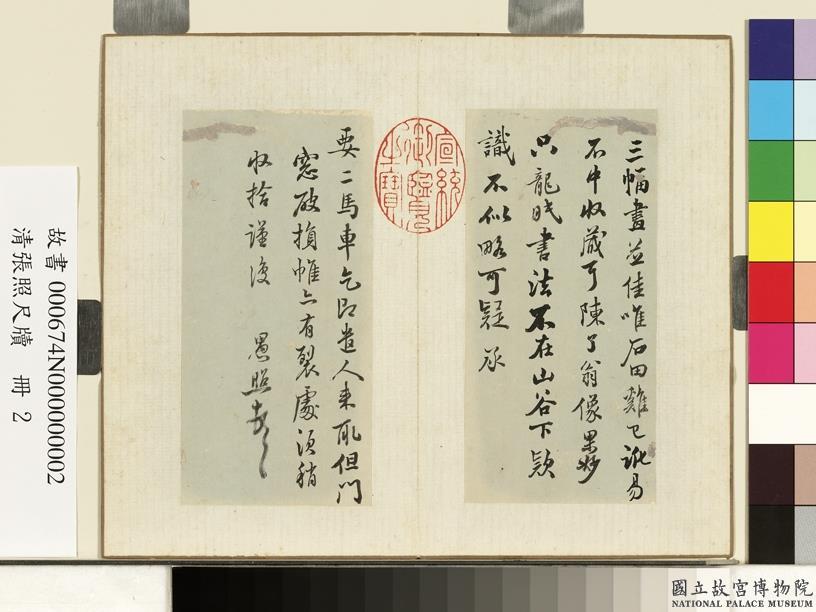 三幅畫並佳唯石田雞已訛易
不中收藏耳陳了翁像果妙
只龍眠書法不在山谷下款
識不似略可疑承
要二馬車乞即遣人來取但門
窓破損帷亦有裂處須稍
收拾謹復 愚照
宣統御覽之寶
故書 000674N000000002
清張照尺牘 冊 2
國立故宮博物院
NATIONAL PALACE MUSEUM